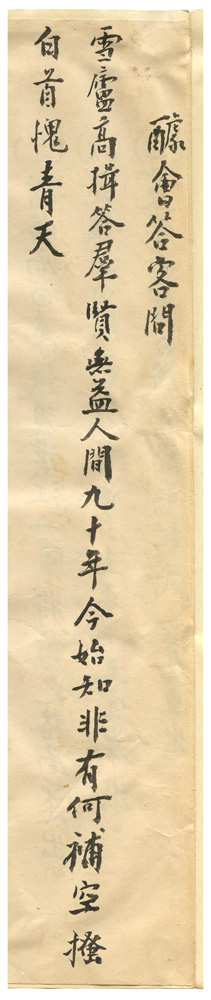 醵會答客問
雪廬高揖答羣賢無益人間九十年今始知非有何補空搔
白首愧青天